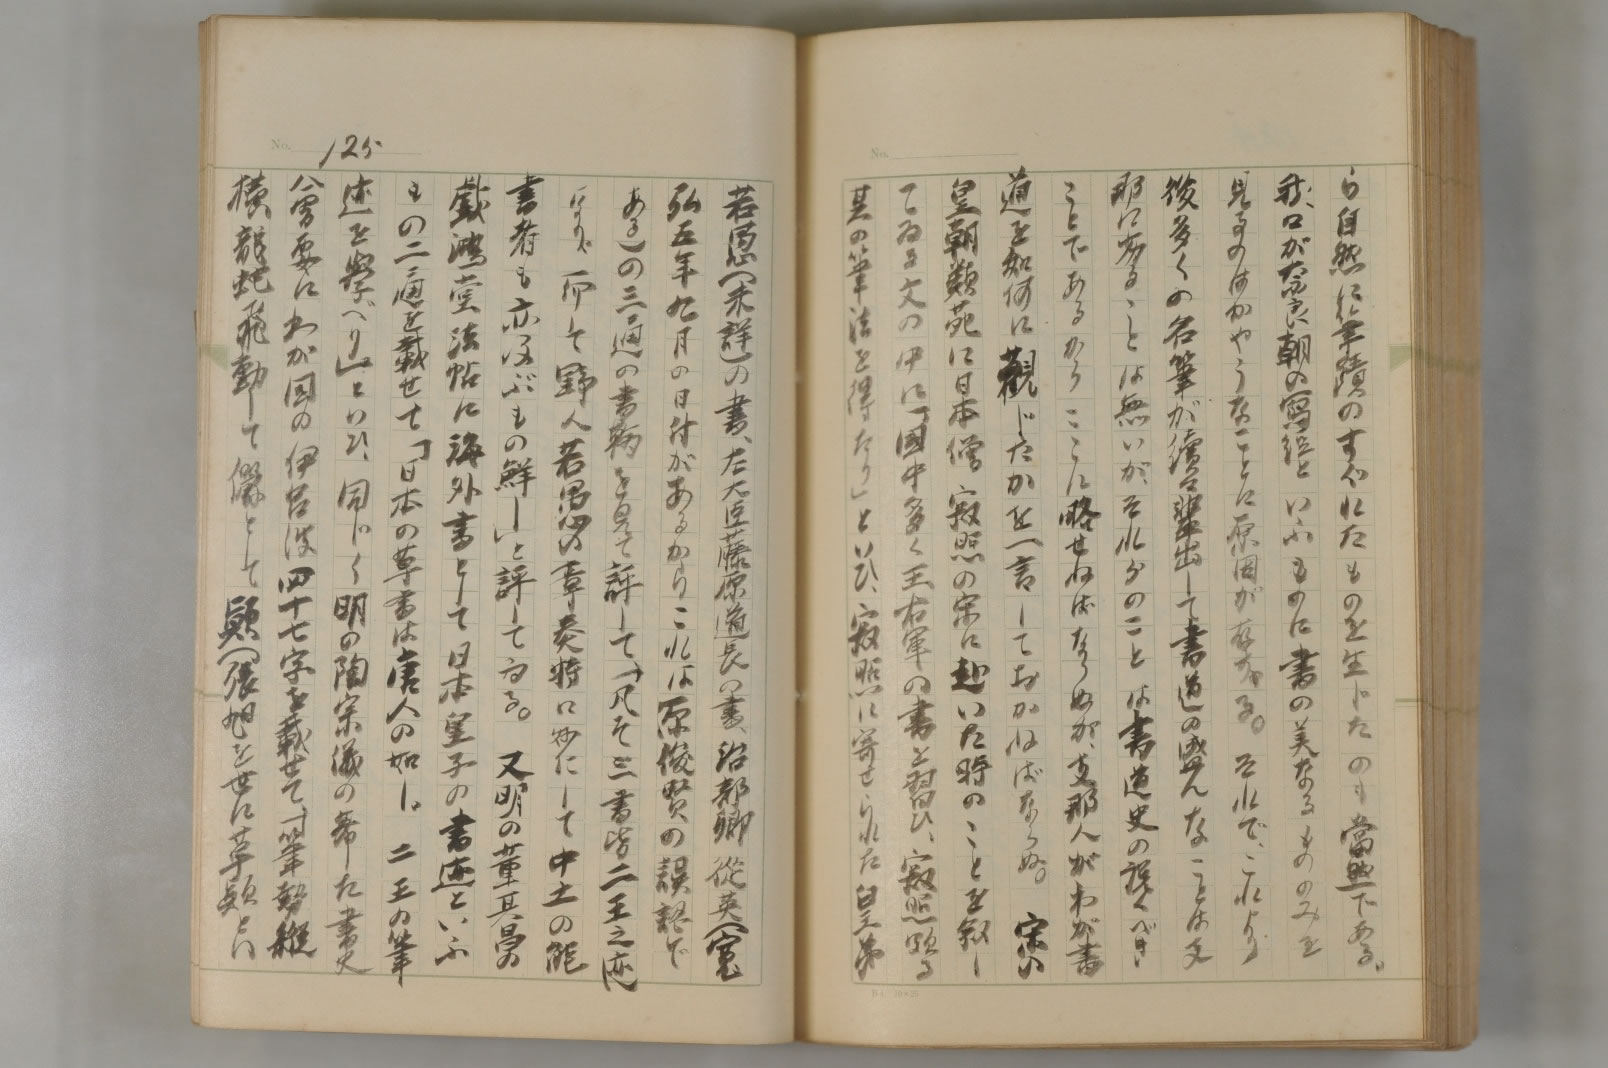 ら自然に筆蹟のすぐれたものを生じたのも當然である。
我口が奈良朝の寫経といふものに書の美なるもののみを
見るのはかやうなことに原因が存する。それで、これより
後多くの名筆が續々輩出して書道の盛んなことは文
那に劣ることは無いが、それらのことは書道史の説くべき
ことであるからここに略せねばならぬが、支那人がわが書
道を如何に觀じたかを一言しておかねばならぬ。宋の
皇朝類苑に日本僧寂照の宋に赴いた時のことを叙し
てゐる文の中に「國中多く王右軍の書を習ひ、寂照頗る
其の筆法を得たり」といひ、寂照に寄せられた皇弟
No. 125
若愚(未詳)の書、左大臣藤原道長の書、治部卿從英(寛
弘五年九月の日付があるからこれは源俊賢の誤認で
ある)の三通の書翰を見て評して、「凡そ三書皆二王之迹
にして野人若愚の章奏特に妙にして中土の能
書者も亦及ぶもの鮮し」と評してゐる。又明の董其昌の
戲鴻堂法帖に海外書として日本皇子の書迹といふ
もの二通を載せて、「日本の草書は唐人の如し、二王の筆
迹を學べり」といひ、同じく明の陶宗儀の著した書史
會要にわが国の伊呂波四十七字を載せて、「筆勢縱
橫、龍蛇飛動して儼として顚(張旭を世に草顚とい
No.